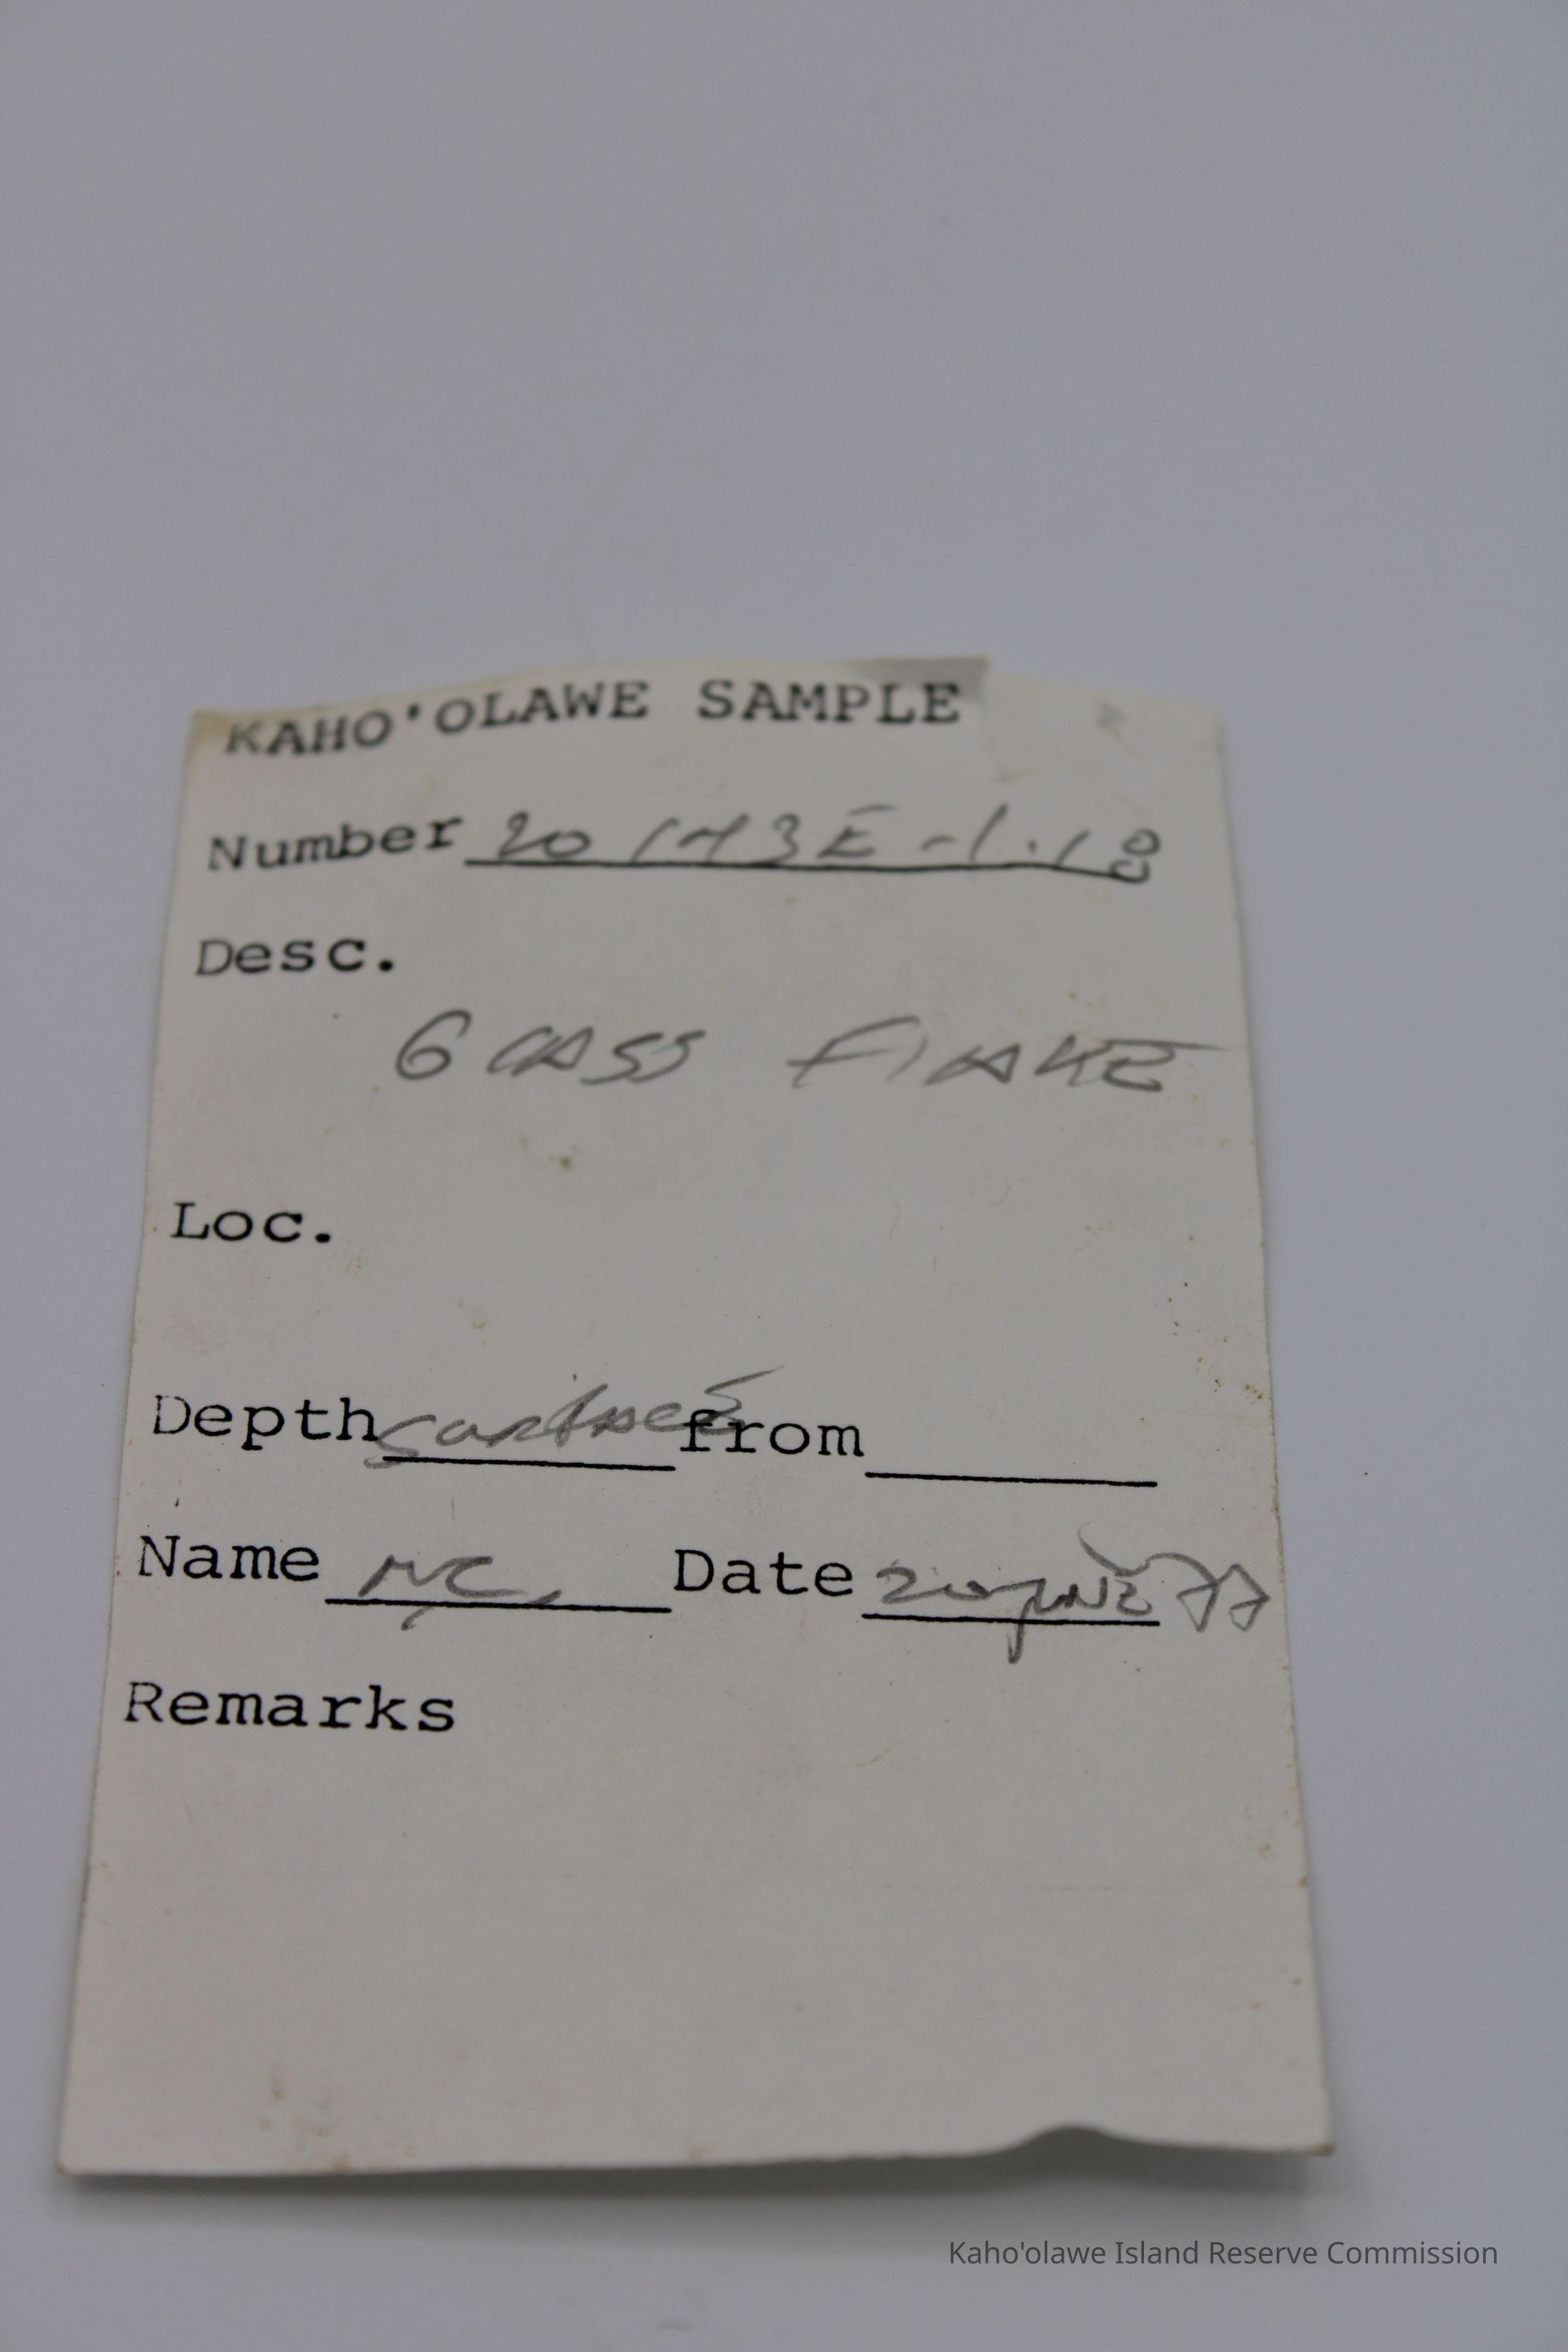 KAHO'OLAWE SAMPLE
Number 20 143E-1.18
Desc.
GLASS FLAKE
Loc.
Depth surface from
Name NC. Date 20 JUNE 77
Remarks
Kaho'olawe Island Reserve Commission